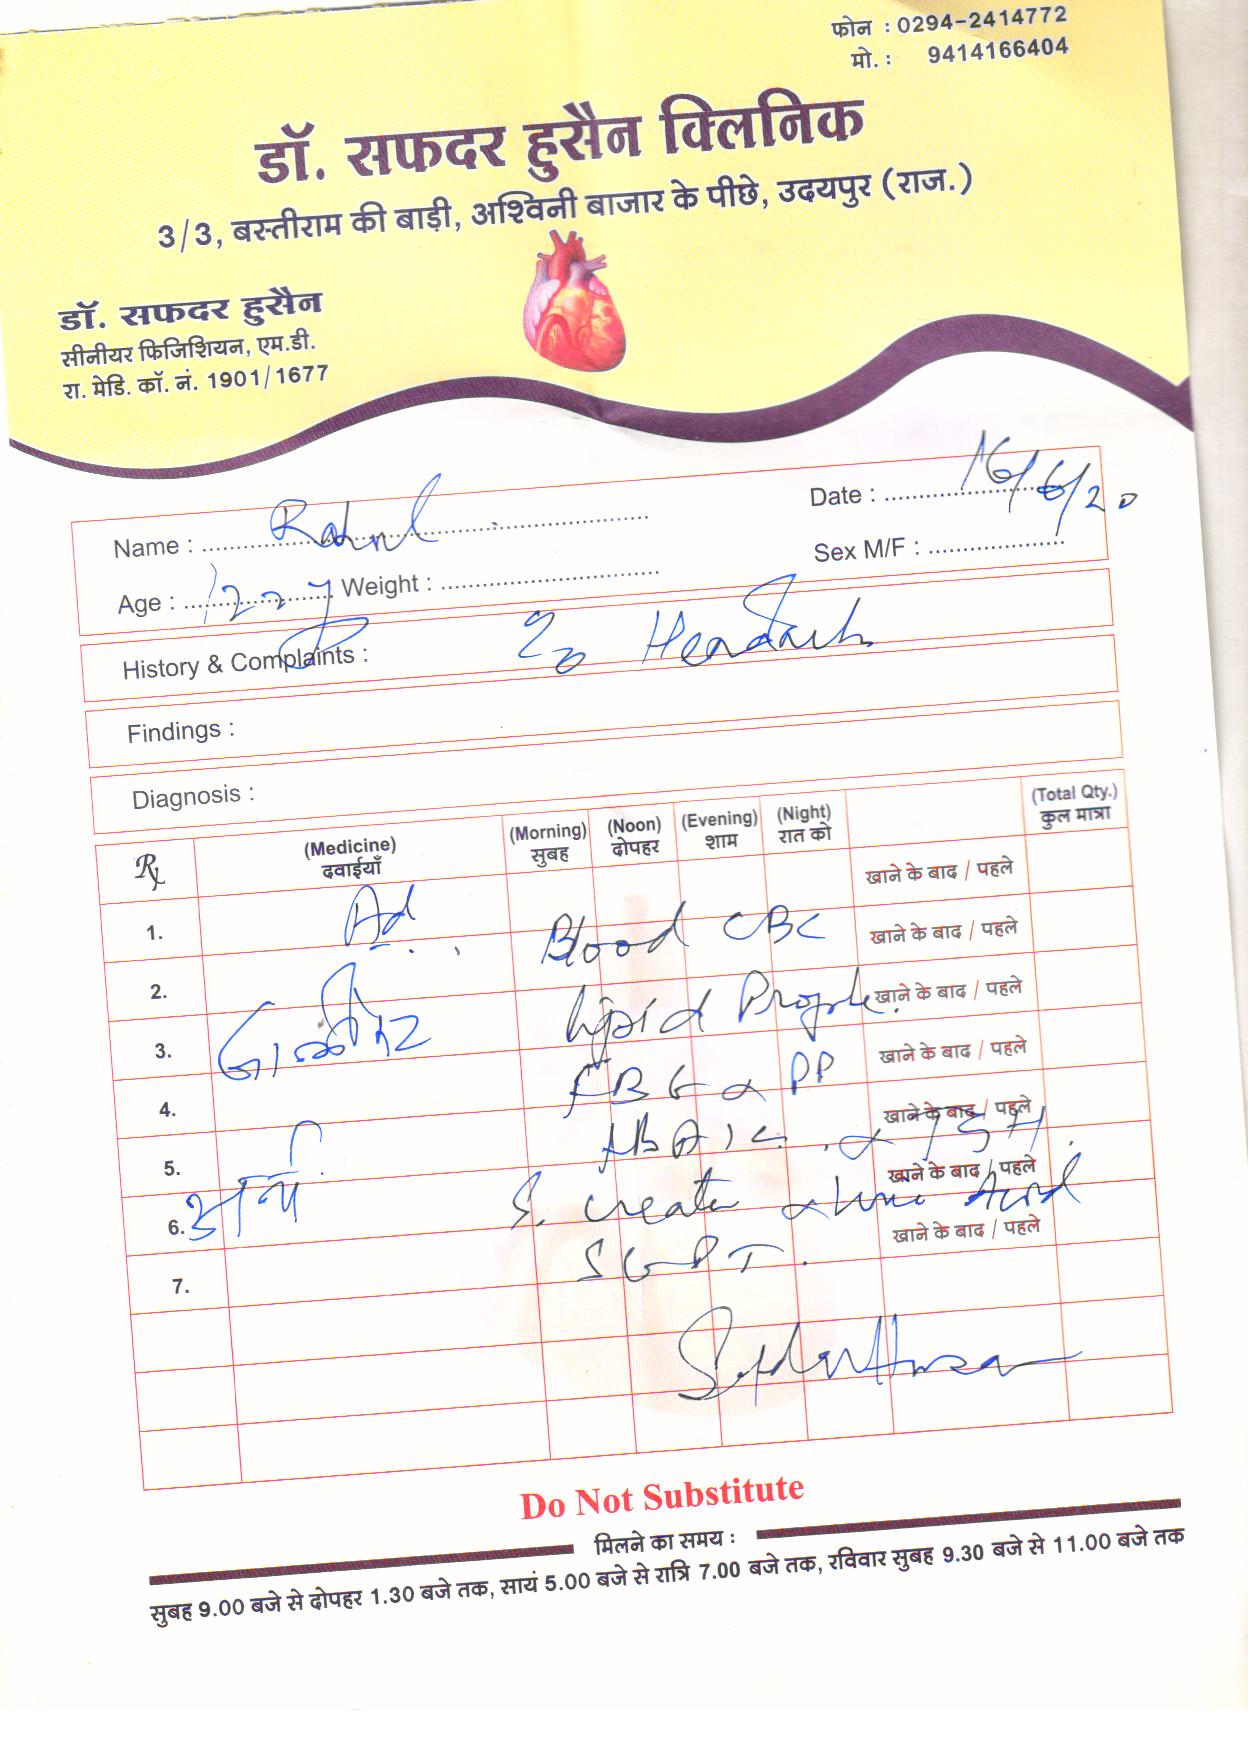 फोन : 0294-2414772
मो. : 9414166404
डॉ. सफदर हुसैन क्लिनिक
3/3, बस्तीराम की बाड़ी, अश्विनी बाजार के पीछे, उदयपुर (राज.)
डॉ. सफदर हुसैन
सीनीयर फिजिशियन, एम.डी.
रा. मेडि. कॉ. नं. 1901/1677
Name : Rahul Date : 16/6/20
Age : Weight : Sex M/F :
History & Complaints :
Findings :
Diagnosis :
Rx (Medicine) (Morning) (Noon) (Evening) (Night) (Total Qty.)
दवाईयाँ सुबह दोपहर शाम रात को कुल मात्रा
खाने के बाद / पहले
1. Ad Blood CBC खाने के बाद / पहले
2. Lipid Profile खाने के बाद / पहले
3. FBG & PP खाने के बाद / पहले
4. & TSH खाने के बाद / पहले
5. S. Creat & Uric Acid खाने के बाद / पहले
6. SGPT. खाने के बाद / पहले
7.
Do Not Substitute
मिलने का समय :
सुबह 9.00 बजे से दोपहर 1.30 बजे तक, सायं 5.00 बजे से रात्रि 7.00 बजे तक, रविवार सुबह 9.30 बजे से 11.00 बजे तक